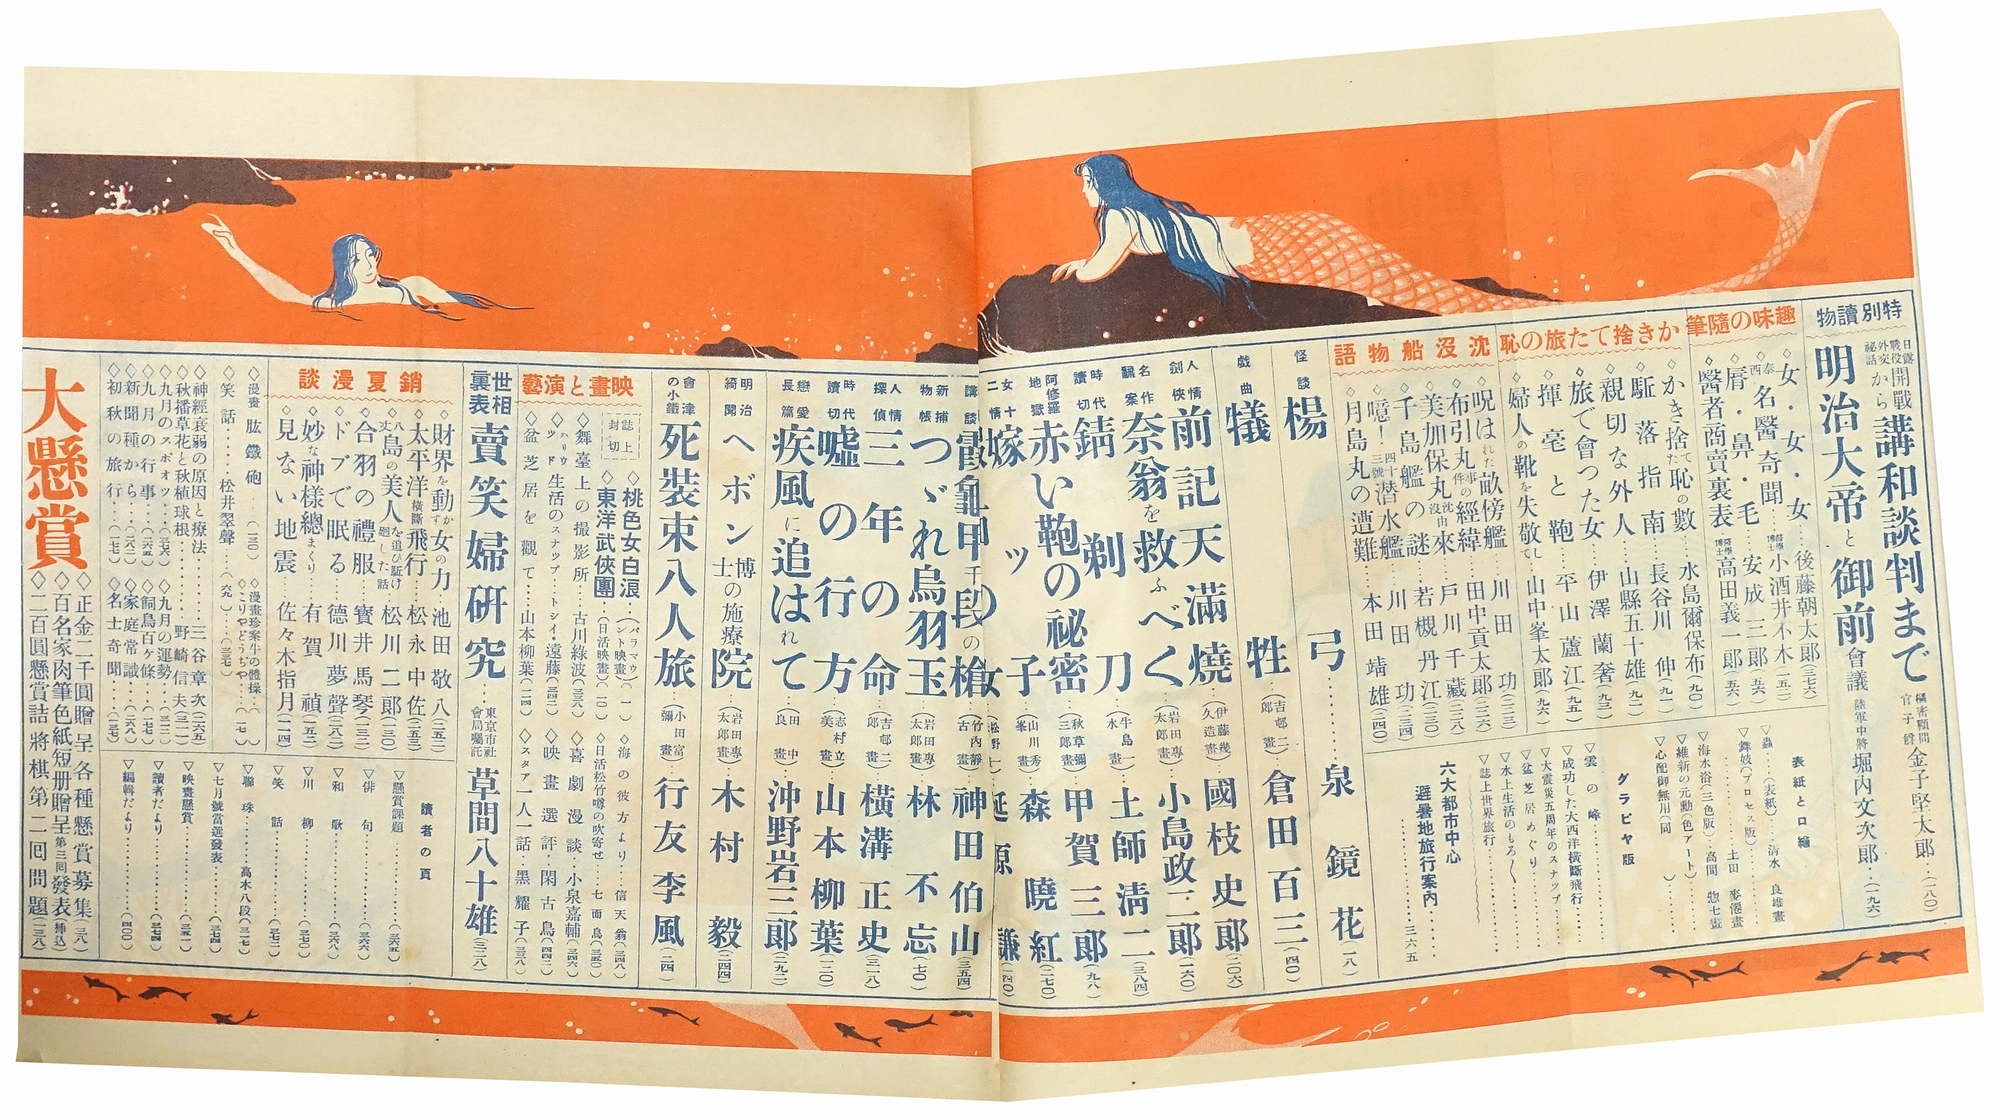 特別讀物
日露戰役外交秘話
開戰から講和談判まで
樞密顧問官子爵 金子堅太郎‥(一八〇)
明治大帝と御前會議
陸軍中將 堀内文次郎‥(一九六)
趣味の隨筆
◇女・女・女‥後藤朝太郎(三七六)
◇泰西名醫奇聞‥醫學博士小酒井不木(一五二)
◇脣・鼻・毛‥安成二郎(五六)
◇醫者商賣裏表 醫學博士高田義一郎(五六)
かき捨てた旅の恥
◇かき捨てた恥の數‥水島爾保布(九〇)
◇駈落指南‥長谷川伸(九一)
◇親切な外人‥山縣五十雄(九二)
◇旅で會つた女‥伊澤蘭奢(九三)
◇揮毫と鞄‥平山蘆江(九五)
◇婦人の靴を失敬して‥山中峯太郎(九六)
沈沒船物語
◇呪はれた畝傍艦‥川田功(二三三)
◇布引丸事件の經緯‥田中貢太郎(二三六)
◇美加保丸沈沒由來‥戸川千藏(二三八)
◇千島艦の謎‥若槻丹江(二三〇)
◇噫!四十三號潜水艦‥川田功(二三四)
◇月島丸の遭難‥本田靖雄(二四〇)
表紙と口繪
▽蟲‥(表紙)‥清水良雄畫
▽舞妓(プロセス版)‥土田麥僊畫
▽海水浴(三色版)‥高間惣七畫
▽維新の元勳(色アート)
▽心配御無用(同)
グラビヤ版
▽雲の峰
▽成功した大西洋横斷飛行
▽大震災五周年のスナツプ
▽盆芝居めぐり
▽水上生活のもろ〱
▽誌上世界旅行
六大都市中心
避暑地旅行案内‥三六五
怪談 楊弓‥泉鏡花(一八)
戯曲 犠牲‥(吉邨二郎畫)倉田百三(四〇)
人情劍俠 前記天滿燒‥(伊藤幾久造畫)國枝史郎(二〇六)
名作飜案 奈翁を救ふべく‥(岩田專太郎畫)小島政二郎(一六〇)
時代讀切 錆剃刀‥(牛島一水畫)土師清二(三八四)
阿修羅地獄 赤い鞄の秘密‥(秋草彌三郎畫)甲賀三郎(九八)
嫁ツ子‥(山川秀峯畫)森曉紅(二七〇)
女十二情
講談 霞龜甲千段の槍‥(竹内靜古畫)神田伯山(三五四)
新捕物帳 つゞれ烏羽玉‥(岩田專太郎畫)林不忘(七〇)
人情探偵 三年の命‥(吉邨二郎畫)横溝正史(三一八)
時代讀切 嘘の行方‥(志村立美畫)山本柳葉(一二〇)
戀愛長篇 疾風に追はれて‥(田中良畫)沖野岩三郎(二九二)
明治綺聞 ヘボン博士の施療院‥(岩田專太郎畫)木村毅(二四四)
會津の小鐵 死裝束八人旅‥(小田富彌畫)行友李風(二四)
映畫と演藝
誌上封切
◇桃色女白浪‥(パラマウント映畫)(一)
◇東洋武俠團‥(日活映畫)(一〇)
◇舞臺上の撮影所‥古川綠波(三六)
◇ハリウツド生活のスナツプ‥トシイ遠藤(三四三)
◇盆芝居を觀て‥山本柳葉(一二四)
◇海の彼方より‥信天翁(三四八)
◇日活松竹噂の吹寄せ‥七面鳥(三五〇)
◇喜劇漫談‥小泉嘉輔(三四六)
◇映畫選評‥閑古鳥(三四二)
◇スタア一人一話‥黑耀子(三三八)
世相裏表 賣笑婦研究‥東京市社會局囑託 草間八十雄(三二八)
銷夏漫談
◇財界を動かす女の力 池田敬八(三五二)
◇太平洋横斷飛行‥松永中佐(三五三)
◇八丈島の美人を追ひ駈け廻した話 松川二郎(三八〇)
◇合羽の禮服‥寶井馬琴(三三二)
◇ドブで眠る‥德川夢聲(三八二)
◇妙な神樣總まくり‥有賀禎(一五三)
◇見ない地震‥佐々木指月(二一四)
讀者の頁
▽懸賞課題‥(三六五)
▽俳句‥(三六六)
▽和歌‥(三六八)
▽川柳‥(三七〇)
▽笑話‥(三七二)
▽聯珠‥高木八段(三一七)
▽七月號當選發表‥(三七四)
▽映畫懸賞‥(三五一)
▽讀者だより‥(三七四)
▽編輯だより‥(四〇〇)
◇漫畫 肱鐵砲‥(一三〇)
◇漫畫珍案牛の體操‥(一七)
◇笑話‥松井翠聲‥(六九)
◇こりやどうぢや‥(三七)
◇神經衰弱の原因と療法‥三谷章次(二六五)
◇秋播草花と秋植球根‥野崎信夫(三二一)
◇九月のスポオツ‥(三六)
◇九月の運勢‥(三二)
◇九月の行事‥(六五)
◇飼鳥百ケ條‥(一七)
◇新聞種から‥(二八二)
◇家庭常識‥(二六八)
◇初秋の旅行‥(一七)
◇名士奇聞‥(三七)
大懸賞
◇正金二千圓贈呈各種懸賞募集(三八)
◇百名家肉筆色紙短册贈呈第三回發表(挿込)
◇二百圓懸賞詰將棋第二回問題(一三八)